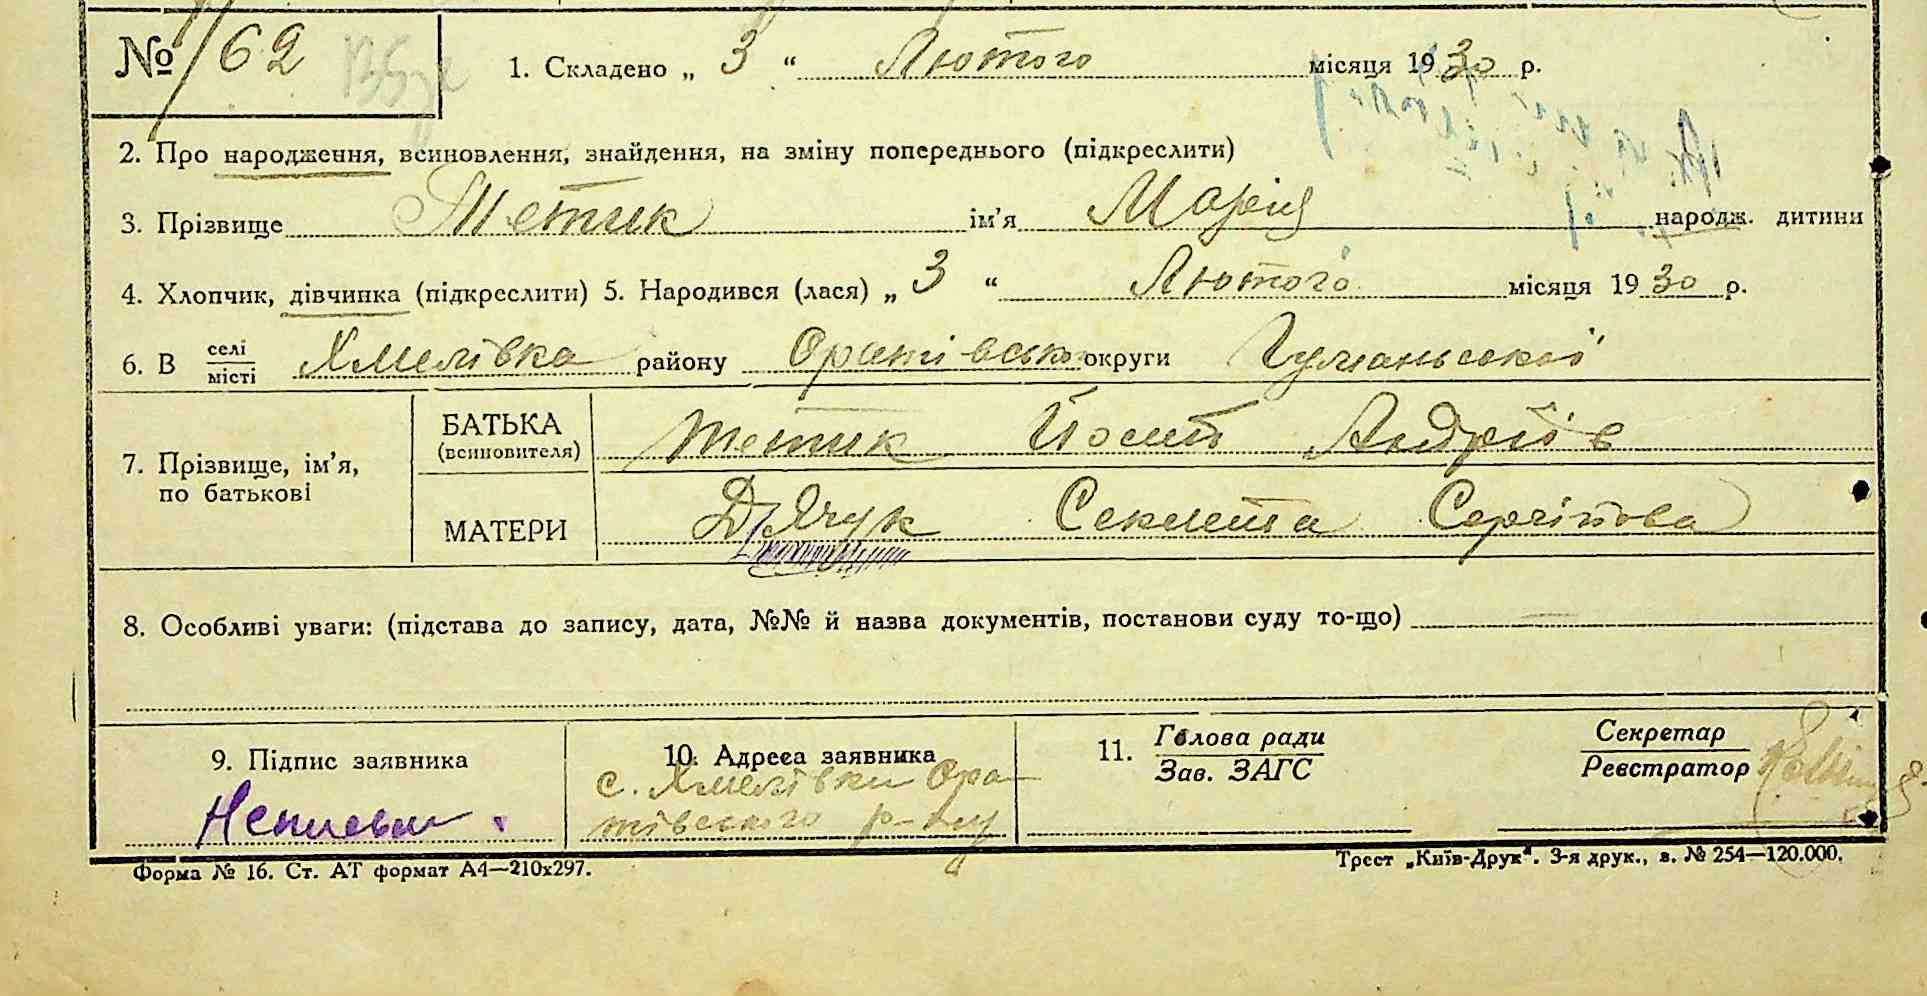 № 62
1. Складено „ 3 “ Лютого місяця 1930 р.
2. Про народження, всиновлення, знайдення, на зміну попереднього (підкреслити)
3. Прізвище Тетик ім’я Марія народж. дитини
4. Хлопчик, дівчинка (підкреслити) 5. Народився (лася) „ 3 “ Лютого місяця 1930 р.
6. В селі місті Хмелівка району Оратівськ округи Гуманьської
7. Прізвище, ім’я, по батькові
БАТЬКА (всиновителя) Тетик Йосип Андріїв
МАТЕРИ Дячук Секлета Сергіїова
8. Особливі уваги: (підстава до запису, дата, №№ й назва документів, постанови суду то-що) —
9. Підпис заявника
Неписьм.
10. Адреса заявника
с. Хмелівки Ора-
тівського р-ну
11. Голова ради
Зав. ЗАГС
Секретар
Реєстратор
Форма № 16. Ст. АТ формат А4—210х297.
Трест „Київ-Друк“. 3-я друк., з. № 254—120.000.